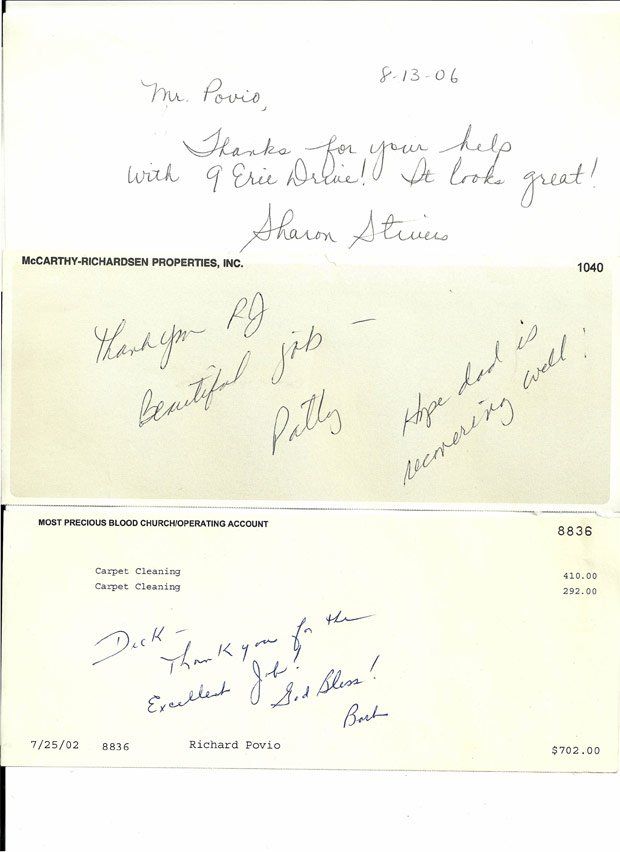 8-13-06
Mr. Povio,
Thanks for your help
with 9 Erie Drive! It looks great!
Sharon Strivers
McCARTHY-RICHARDSEN PROPERTIES, INC. 1040
Thank you RJ
Beautiful job —
Patty
Hope dad is
recovering well!
MOST PRECIOUS BLOOD CHURCH/OPERATING ACCOUNT 8836
Carpet Cleaning 410.00
Carpet Cleaning 292.00
Dick —
Thank you for the
Excellent Job!
God Bless!
Barb
7/25/02 8836 Richard Povio $702.00